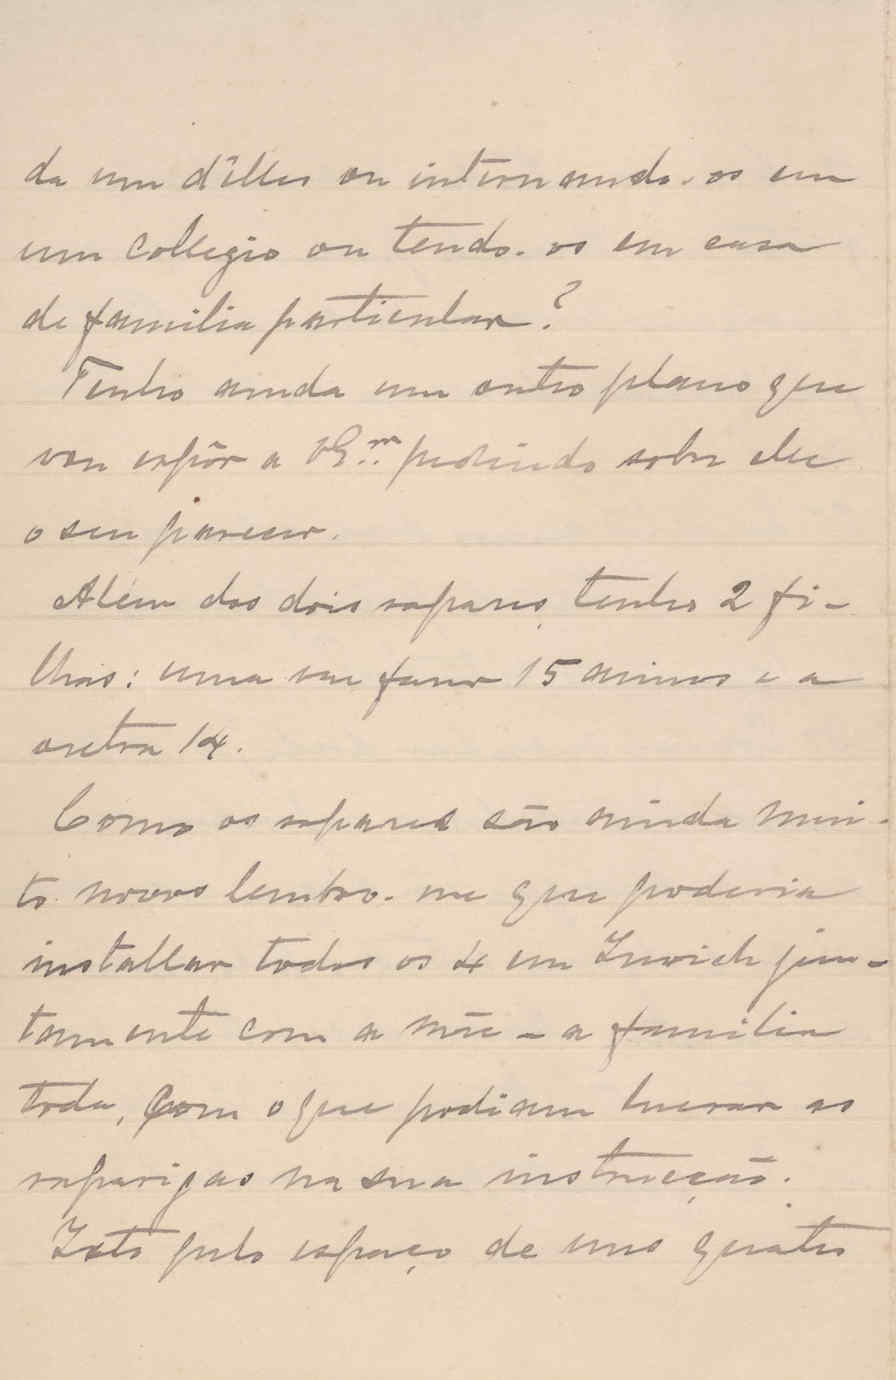 da um d'elles ou internando-os em
um collegio ou tendo-os em casa
de familia particular?
Tenho ainda um outro plano que
vou expôr a V. Ex.ª pedindo sobre elle
o seu parecer.
Além dos dois rapazes, tenho 2 fi-
lhas: uma vae fazer 15 annos e a
outra 14.
Como os rapazes são ainda mui-
to novos lembro-me que poderia
installar todos os 4 em Zurich jun-
tamente com a mãe - a familia
toda, com o que podiam lucrar as
raparigas na sua instrucção.
Isto pelo espaço de uns quatro